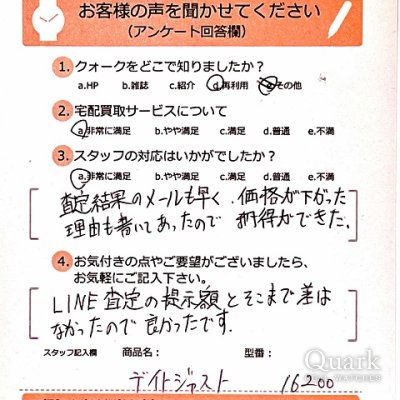 お客様の声を聞かせてください
(アンケート回答欄)
1. クォークをどこで知りましたか?
a.HP b.雑誌 c.紹介 d.再利用 e.その他
2. 宅配買取サービスについて
a.非常に満足 b.やや満足 c.満足 d.普通 e.不満
3. スタッフの対応はいかがでしたか?
a.非常に満足 b.やや満足 c.満足 d.普通 e.不満
査定結果のメールも早く、価格が下がった
理由も書いてあったので 納得ができた。
4. お気付きの点やご要望がございましたら、
お気軽にご記入下さい。
LINE査定の提示額とそこまで差は
なかったので良かったです。
スタッフ記入欄 商品名: 型番:
デイトジャスト 16200
Quark
WATCHES